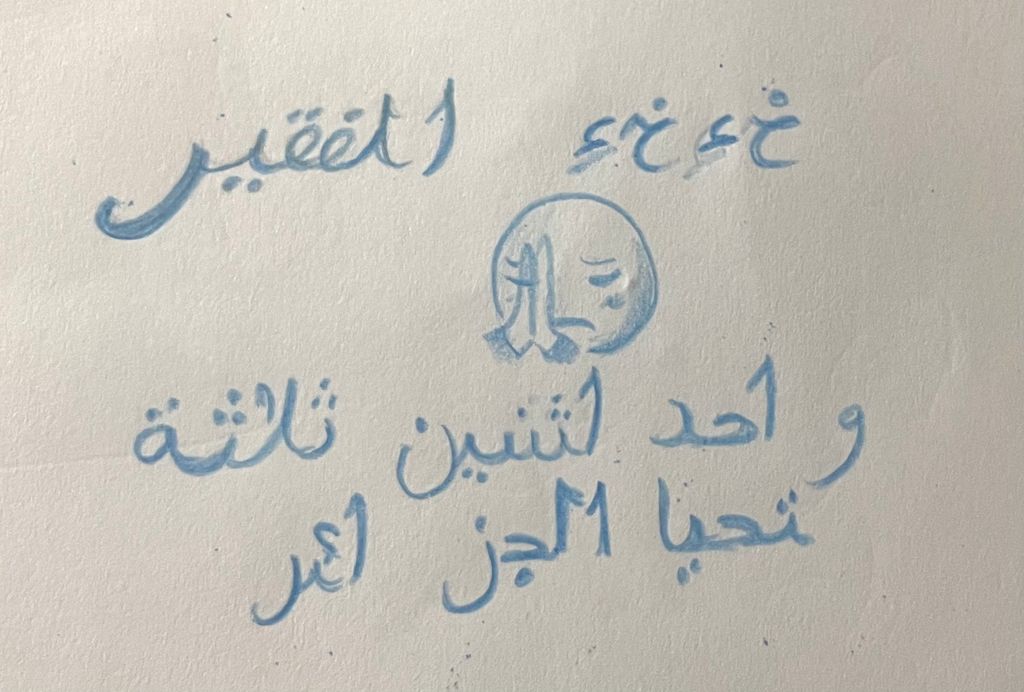 خءخء الفقير
واحد اثنين ثلاثة
تحيا الجزائر